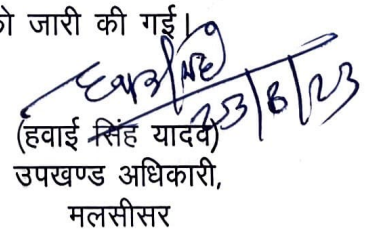 को जारी की गई।
23/8/23
(हवाई सिंह यादव)
उपखण्ड अधिकारी,
मलसीसर